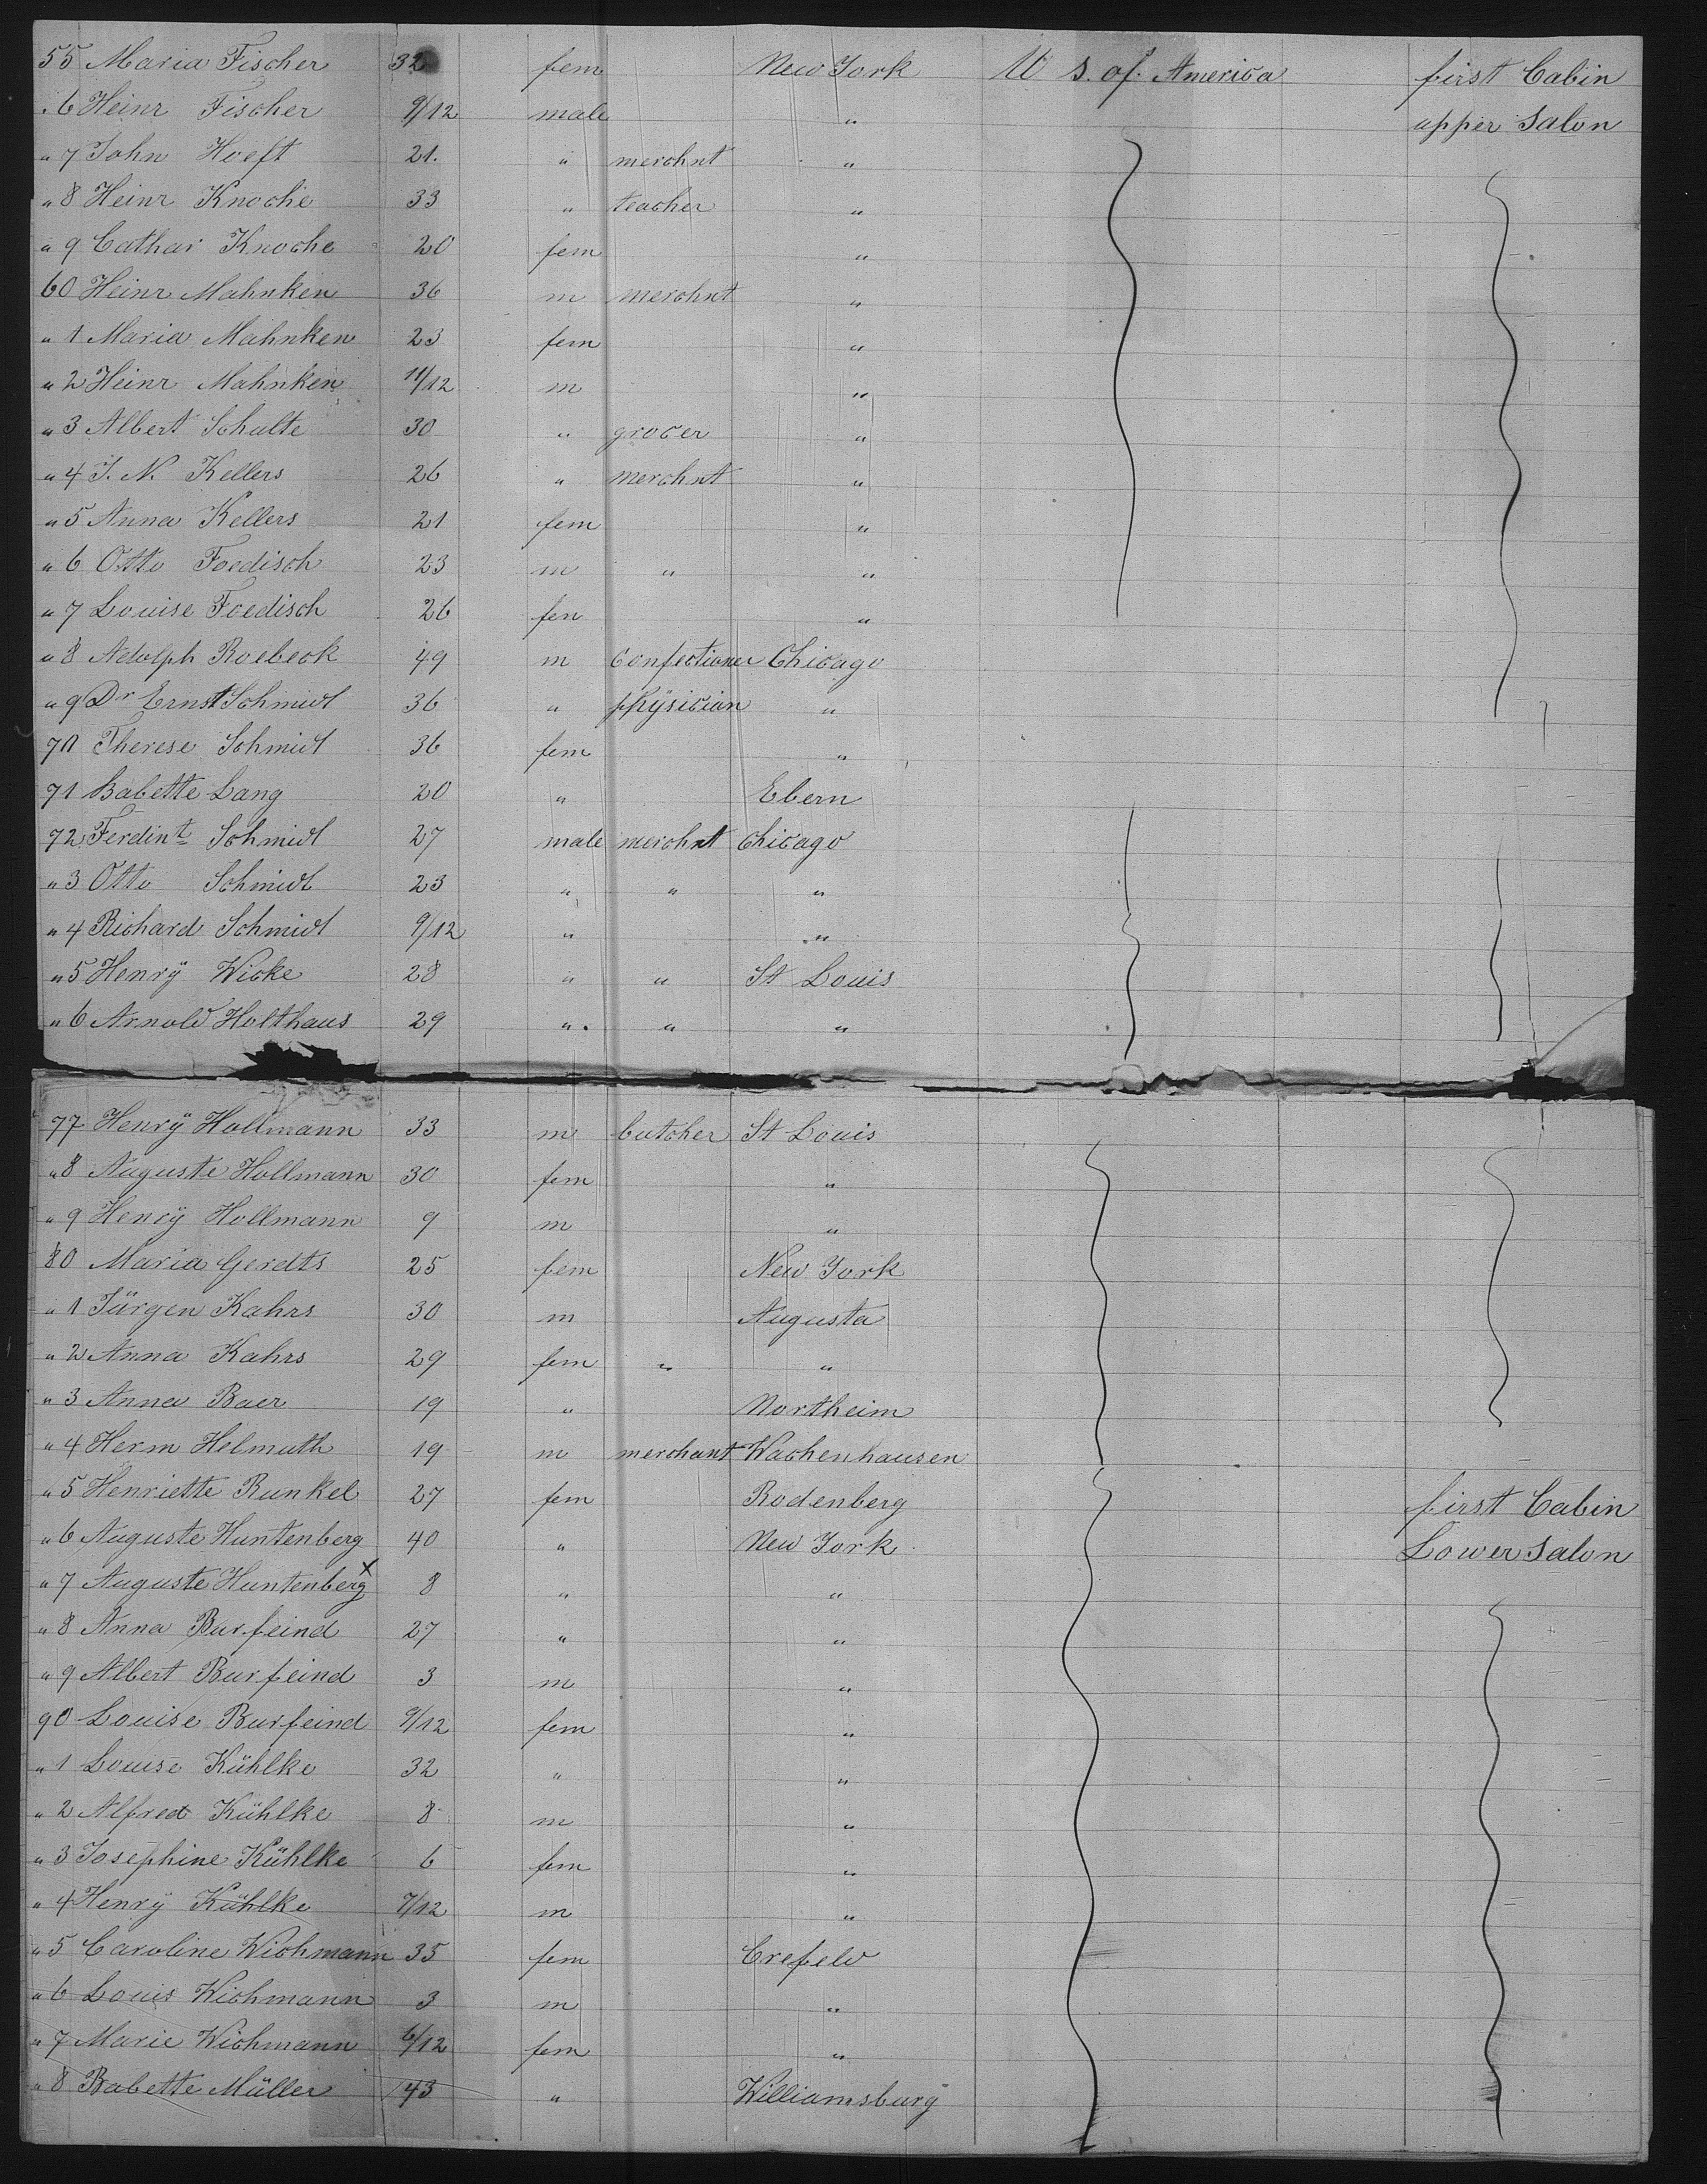 55 Maria Fischer 32 fem New York U S. of. America first Cabin
" 6 Heinr Fischer 9/12 male " upper Salon
" 7 John Hoeft 21. " merchnt "
" 8 Heinr Knoche 33 " teacher "
" 9 Cathar Knoche 20 fem "
60 Heinr Mahnken 36 m merchnt "
" 1 Maria Mahnken 23 fem "
" 2 Heinr Mahnken 11/12 m "
" 3 Albert Schulte 30 " grocer "
" 4 J. N. Kellers 26 " merchnt "
" 5 Anna Kellers 21 fem "
" 6 Otto Foedisch 23 m " "
" 7 Louise Foedisch 26 fen "
" 8 Adolph Roebeck 49 m Confectioner Chicago
" 9 Dr Ernst Schmidt 36 " physician "
70 Therese Schmidt 36 fem "
71 Babette Lang 20 " Ebern
72 Ferdint Schmidt 27 male merchnt Chicago
" 3 Otto Schmidt 23 " " "
" 4 Richard Schmidt 9/12 " "
" 5 Henrÿ Wicke 28 " " St Louis
" 6 Arnold Holthaus 29 " " "
77 Henrÿ Hollmann 33 m butcher St Louis
" 8 Auguste Hollmann 30 fem "
" 9 Henrÿ Hollmann 9 m "
80 Maria Gerdts 25 fem New York
" 1 Jürgen Kahrs 30 m Augusta
" 2 Anna Kahrs 29 fem " "
" 3 Anna Baer 19 " Northeim
" 4 Herm Helmuth 19 m merchant Wachenhausen
" 5 Henriette Runkel 27 fem Rodenberg first Cabin
" 6 Auguste Huntenberg 40 " New York Lower Salon
" 7 Auguste Huntenberg x 8 " "
" 8 Anna Burfeind 27 " "
" 9 Albert Burfeind 3 m "
90 Louise Burfeind 9/12 fem "
" 1 Louise Kühlke 32 " "
" 2 Alfred Kühlke 8 m "
" 3 Josephine Kühlke 6 fem "
" 4 Henrÿ Kühlke 7/12 m "
" 5 Caroline Wichmann 35 fem Crefeld
" 6 Louis Wichmann 3 m "
" 7 Marie Wichmann 6/12 fem "
" 8 Babette Müller 43 " Williamsburg